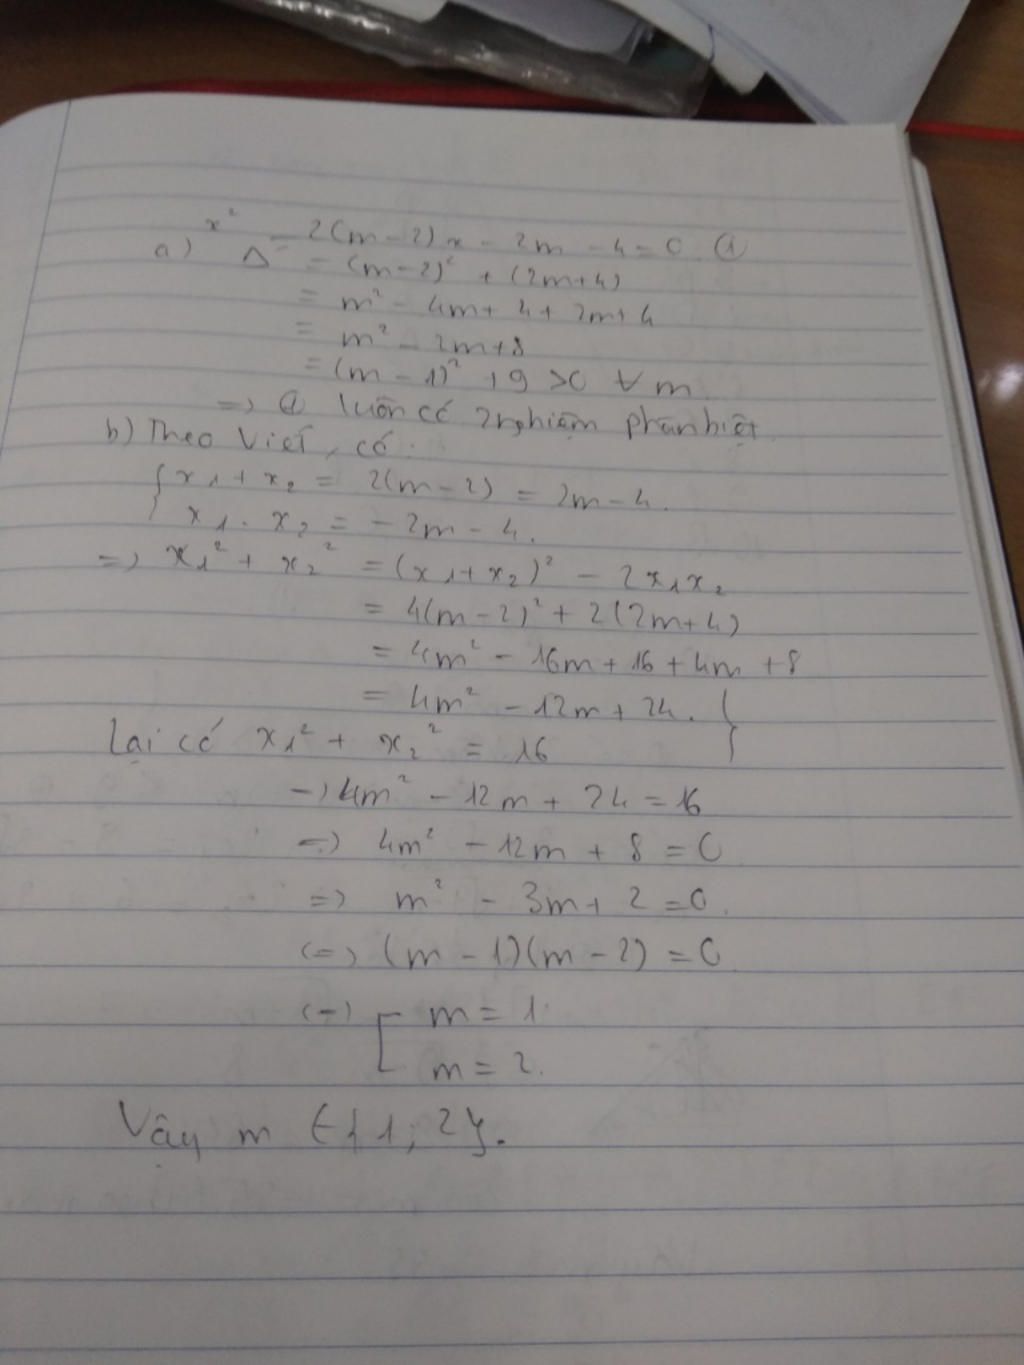 x² - 2(m-2)x - 2m - 4 = 0 (1)
a) Δ' = (m-2)² + (2m+4)
= m² - 4m + 4 + 2m + 4
= m² - 2m + 8
= (m-1)² + 9 > 0 ∀ m
=> (1) luôn có 2 nghiệm phân biệt.
b) Theo Viét, có:
{ x₁ + x₂ = 2(m-2) = 2m - 4.
x₁ . x₂ = -2m - 4.
=> x₁² + x₂² = (x₁+x₂)² - 2x₁x₂
= 4(m-2)² + 2(2m+4)
= 4m² - 16m + 16 + 4m + 8
= 4m² - 12m + 24. }
Lại có x₁² + x₂² = 16
=> 4m² - 12m + 24 = 16
=> 4m² - 12m + 8 = 0
=> m² - 3m + 2 = 0.
<=> (m-1)(m-2) = 0
<=> [ m = 1
m = 2.
Vậy m ∈ {1; 2}.